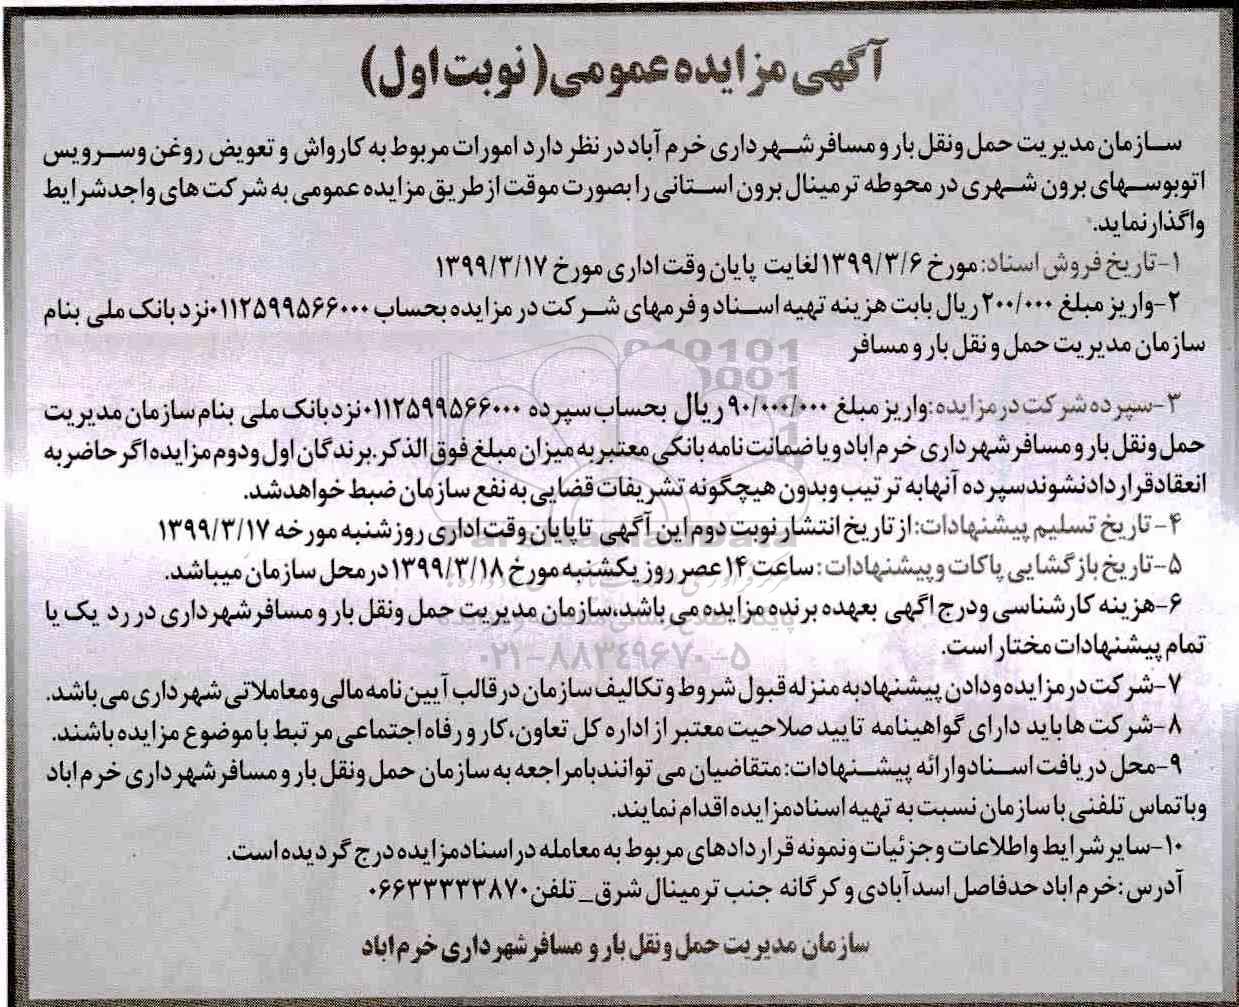 آگهی مزایده عمومی (نوبت اول)
سازمان مدیریت حمل ونقل بار و مسافر شهرداری خرم آباد در نظر دارد امورات مربوط به کارواش و تعویض روغن وسرویس
اتوبوسهای برون شهری در محوطه ترمینال برون استانی را بصورت موقت از طریق مزایده عمومی به شرکت های واجد شرایط
واگذار نماید.
۱-تاریخ فروش اسناد: مورخ ۱۳۹۹/۳/۶ لغایت پایان وقت اداری مورخ ۱۳۹۹/۳/۱۷
۲-واریز مبلغ ۲۰۰/۰۰۰ ریال بابت هزینه تهیه اسناد و فرمهای شرکت در مزایده بحساب ۰۱۱۲۵۹۹۵۶۶۰۰۰ نزد بانک ملی بنام
سازمان مدیریت حمل و نقل بار و مسافر
۳-سپرده شرکت در مزایده: واریز مبلغ ۹۰/۰۰۰/۰۰۰ ریال بحساب سپرده ۰۱۱۲۵۹۹۵۶۶۰۰۰ نزد بانک ملی بنام سازمان مدیریت
حمل ونقل بار و مسافر شهرداری خرم اباد و یا ضمانت نامه بانکی معتبر به میزان مبلغ فوق الذکر. برندگان اول ودوم مزایده اگر حاضر به
انعقاد قرار داد نشوند سپرده آنها به ترتیب وبدون هیچگونه تشریفات قضایی به نفع سازمان ضبط خواهد شد.
۴-تاریخ تسلیم پیشنهادات: از تاریخ انتشار نوبت دوم این آگهی تا پایان وقت اداری روز شنبه مورخه ۱۳۹۹/۳/۱۷
۵-تاریخ بازگشایی پاکات و پیشنهادات: ساعت ۱۴ عصر روز یکشنبه مورخ ۱۳۹۹/۳/۱۸ در محل سازمان میباشد.
۶-هزینه کارشناسی ودرج اگهی بعهده برنده مزایده می باشد، سازمان مدیریت حمل ونقل بار و مسافر شهرداری در رد یک یا
تمام پیشنهادات مختار است.
۰۲۱-۸۸۳۴۹۶۷۰-۵
۷-شرکت در مزایده و دادن پیشنهاد به منزله قبول شروط و تکالیف سازمان در قالب آیین نامه مالی و معاملاتی شهرداری می باشد.
۸-شرکت ها باید دارای گواهینامه تایید صلاحیت معتبر از اداره کل تعاون، کار و رفاه اجتماعی مرتبط با موضوع مزایده باشند.
۹-محل دریافت اسناد وارائه پیشنهادات: متقاضیان می توانند با مراجعه به سازمان حمل ونقل بار و مسافر شهرداری خرم اباد
وبا تماس تلفنی با سازمان نسبت به تهیه اسناد مزایده اقدام نمایند.
۱۰-سایر شرایط واطلاعات وجزئیات ونمونه قراردادهای مربوط به معامله در اسناد مزایده درج گردیده است.
آدرس: خرم اباد حدفاصل اسدآبادی و کرگانه جنب ترمینال شرق_ تلفن ۰۶۶۳۳۳۳۳۸۷۰
سازمان مدیریت حمل ونقل بار و مسافر شهرداری خرم اباد